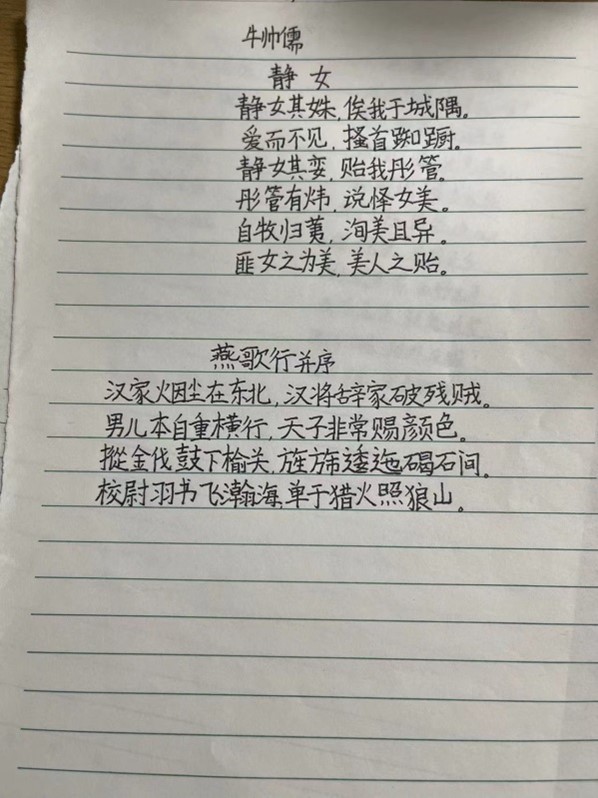 牛帅儒
静女
静女其姝,俟我于城隅。
爱而不见,搔首踟蹰。
静女其娈,贻我彤管。
彤管有炜,说怿女美。
自牧归荑,洵美且异。
匪女之为美,美人之贻。
燕歌行并序
汉家烟尘在东北,汉将辞家破残贼。
男儿本自重横行,天子非常赐颜色。
摐金伐鼓下榆关,旌旆逶迤碣石间。
校尉羽书飞瀚海,单于猎火照狼山。